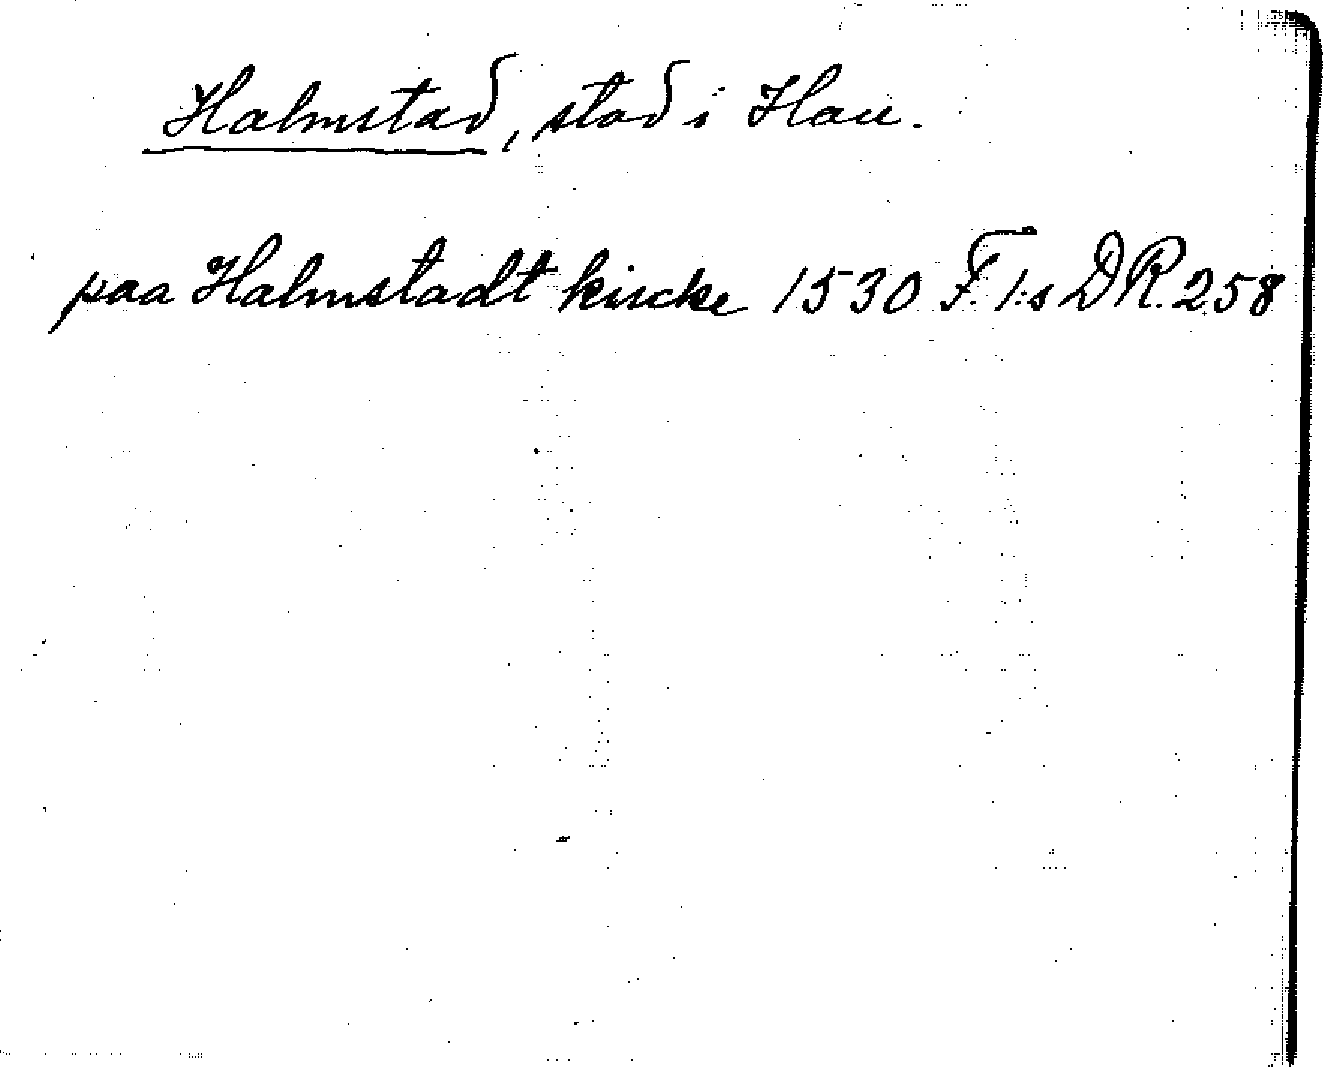 Halmstad, stad i Hall.
paa Halmstadt kircke 1530 F. I:s DR. 258